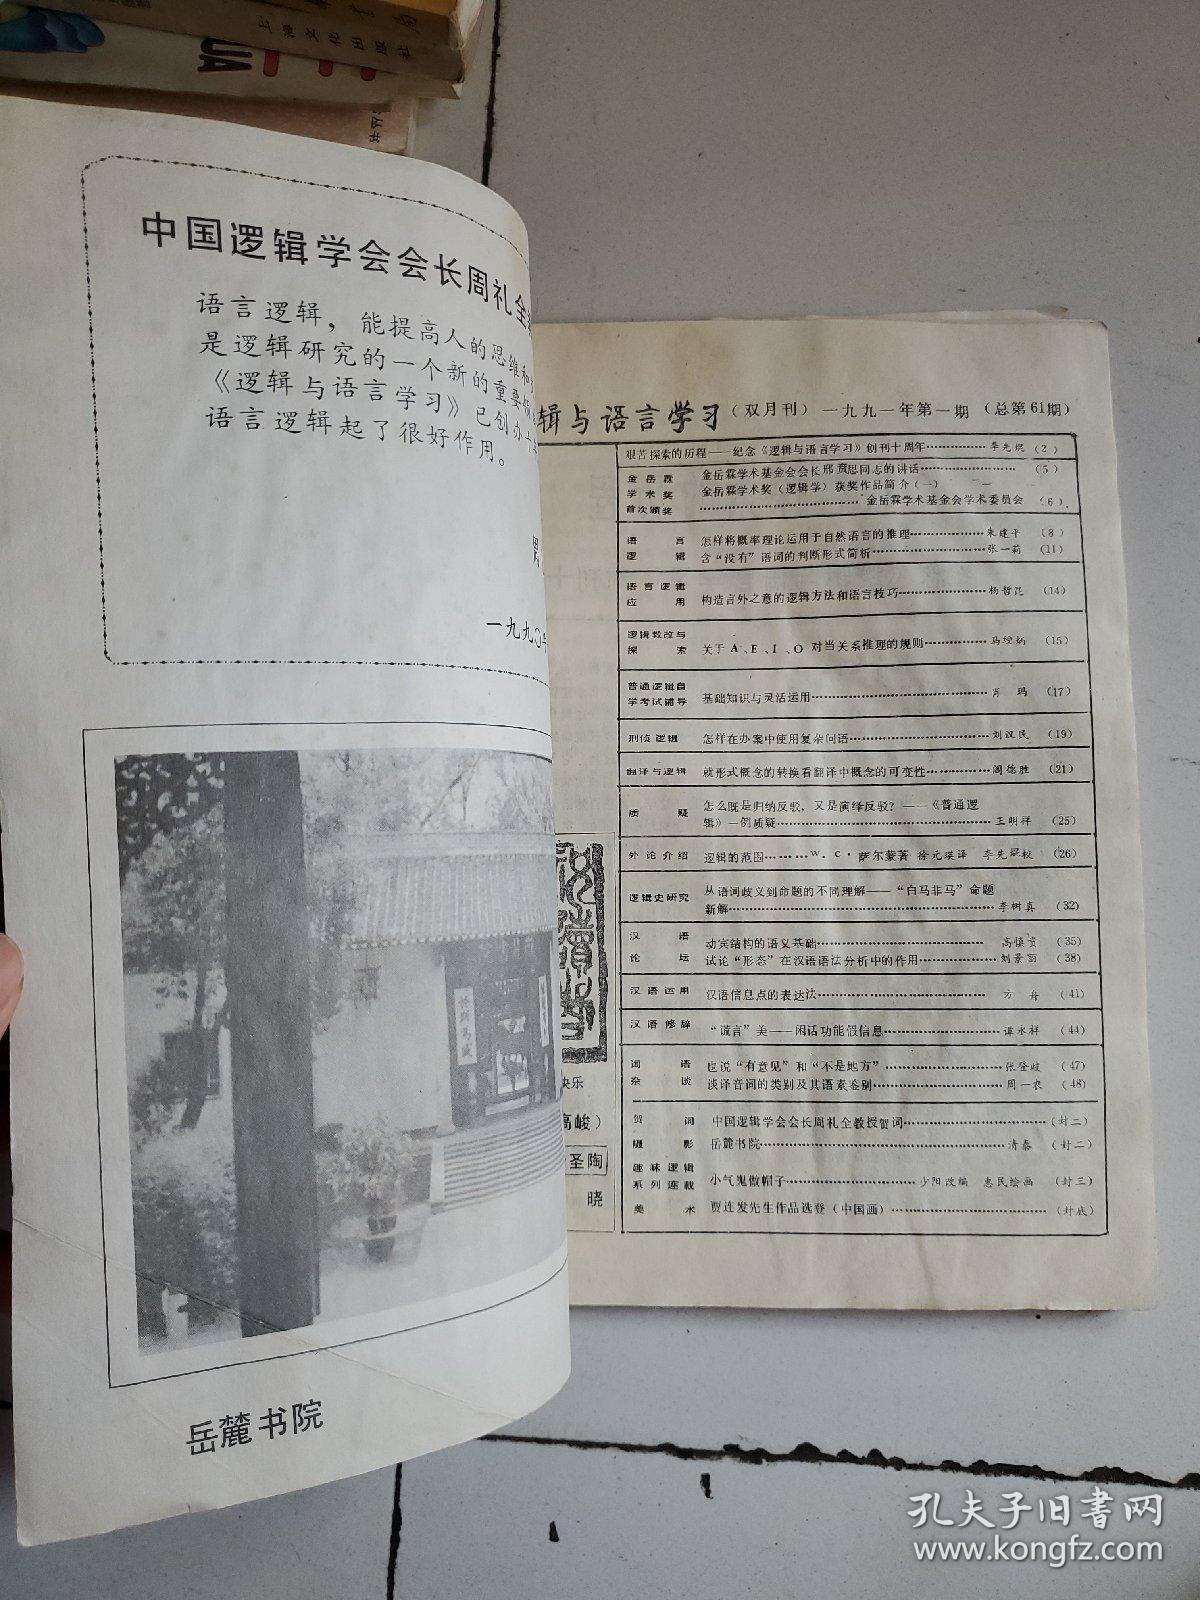 上海文化出版社
中国逻辑学会会长周礼全
语言逻辑，能提高人的思维和
是逻辑研究的一个新的重要
《逻辑与语言学习》已创办十
语言逻辑起了很好作用。
一九九〇年
岳麓书院
辑与语言学习（双月刊）一九九一年第一期（总第61期）
艰苦探索的历程——纪念《逻辑与语言学习》创刊十周年……………李先焜（2）
金岳霖
学术奖
首次颁奖
金岳霖学术基金会会长邢贲思同志的讲话……………………（5）
金岳霖学术奖（逻辑学）获奖作品简介（一）
……………………………金岳霖学术基金会学术委员会（6）
语言
逻辑
怎样将概率理论运用于自然语言的推理………………朱建平（8）
含“没有”语词的判断形式简析………………………张一莉（11）
语言逻辑
应用
构造言外之意的逻辑方法和语言技巧………………杨哲昆（14）
逻辑教改与
探索
关于A、E、I、O对当关系推理的规则……………马绶炳（15）
普通逻辑自
学考试辅导
基础知识与灵活运用……………………………………肖 玛（17）
刑侦逻辑
怎样在办案中使用复杂问语……………………………刘汉民（19）
翻译与逻辑
就形式概念的转换看翻译中概念的可变性……………阎德胜（21）
质疑
怎么既是归纳反驳，又是演绎反驳？——《普通逻
辑》一例质疑……………………………………………王明祥（25）
外论介绍
逻辑的范围………W·C·萨尔蒙著 徐元瑛译 李先焜校（26）
逻辑史研究
从语词歧义到命题的不同理解——“白马非马”命题
新解………………………………………………………李树真（32）
汉语
论坛
动宾结构的语义基础……………………………………高慎贵（35）
试论“形态”在汉语语法分析中的作用………………刘景丽（38）
汉语运用
汉语信息点的表达法……………………………………方 舟（41）
汉语修辞
“谎言”美——闲话功能假信息………………………谭永祥（44）
词语
杂谈
也说“有意见”和“不是地方”………………………张登岐（47）
谈译音词的类别及其语素鉴别…………………………周一农（48）
贺词
中国逻辑学会会长周礼全教授贺词……………………（封二）
摄影
岳麓书院…………………………………………………清泰（封二）
趣味逻辑
系列连载
小气鬼做帽子……………………少阳改编 惠民绘画（封三）
美术
贾连发先生作品选登（中国画）………………………（封底）
快乐
高峻）
圣陶
晓
孔夫子旧书网
www.kongfz.com